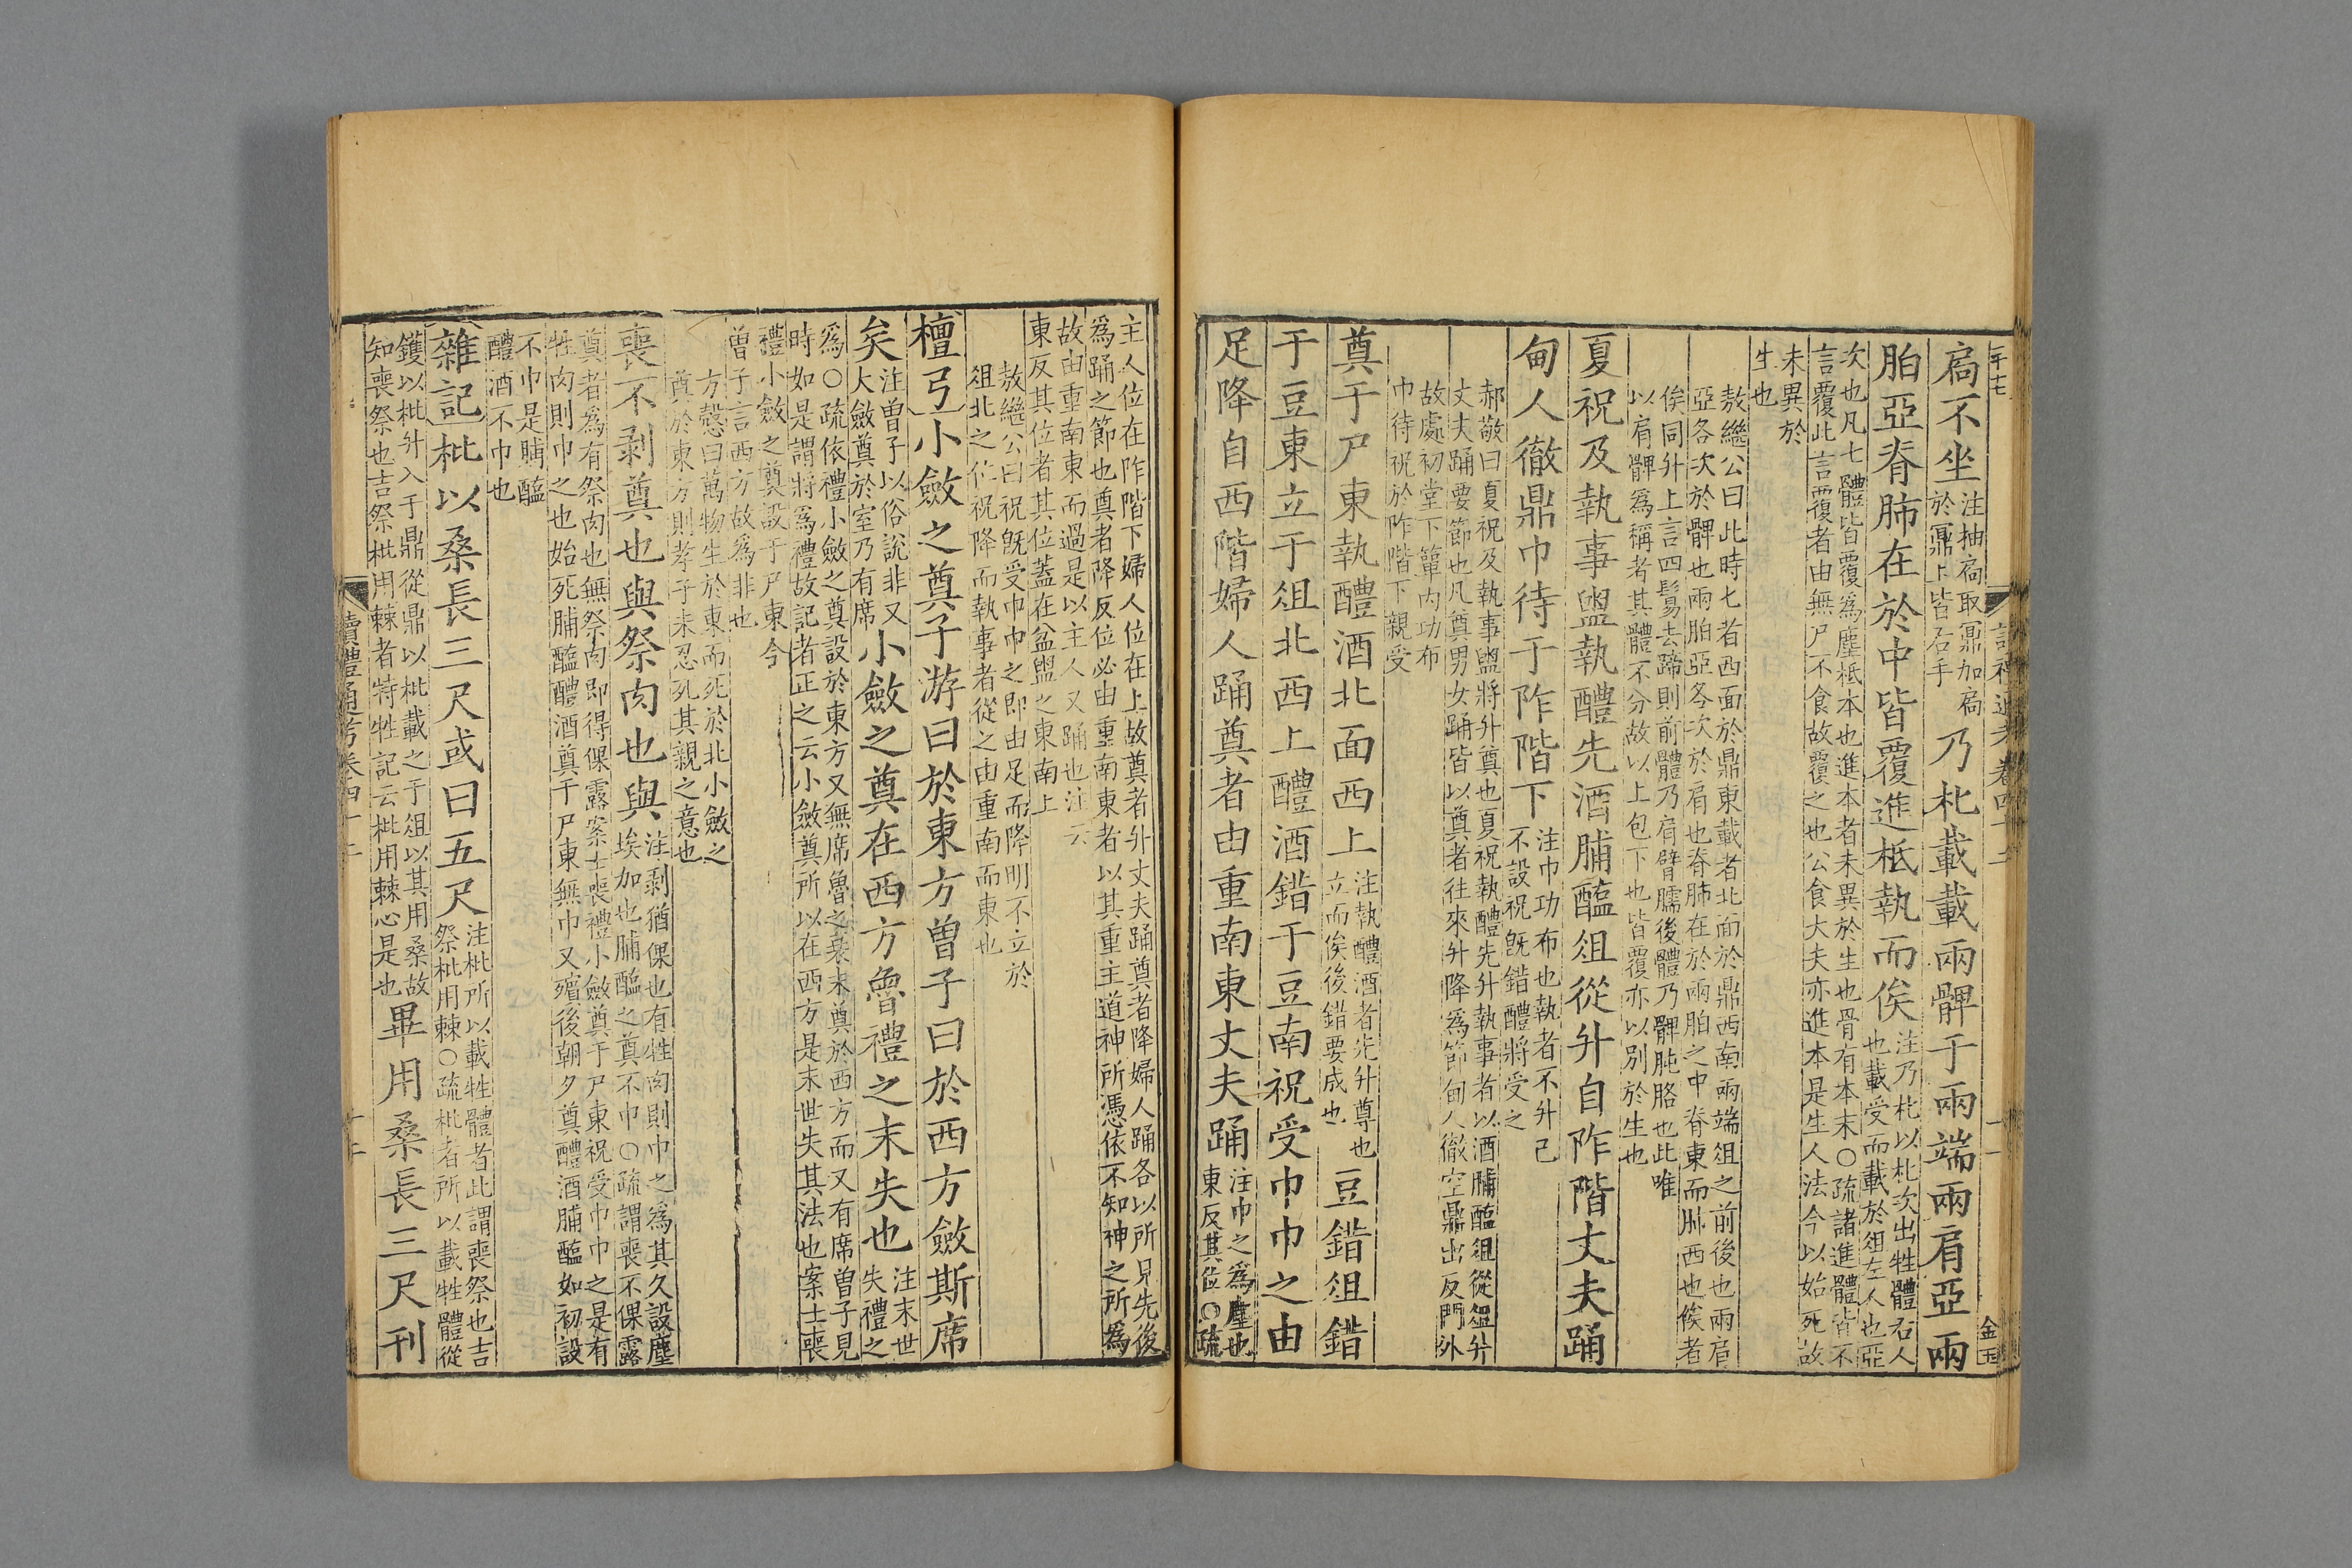 扃不坐注抽扃取鼏加扃
於鼏上皆右手乃朼載載兩髀于兩端兩肩亞兩
胉亞脊肺在於中皆覆進柢執而俟注乃朼以朼次出牲體右人
也載受而載於俎左人也亞
次也凡七體皆覆爲塵柢本也進本者未異於生也骨有本末○疏諸進體皆不
言覆此言覆者由無尸不食故覆之也公食大夫亦進本是生人法今以始死故
未異於
生也
敖繼公曰此時七者西面於鼎東載者北面於鼎西南兩端俎之前後也兩肩
亞各次於髀也兩胉亞各次於肩也脊肺在於兩胉之中脊東而肺西也俟者
俟同升上言四鬄去蹄則前體乃肩臂臑後體乃髀肫胳也此唯
以肩髀爲稱者其體不分故以上包下也皆覆亦以別於生也
夏祝及執事盥執醴先酒脯醢俎從升自阼階丈夫踊
甸人徹鼎巾待于阼階下注巾功布也執者不升己
不設祝旣錯醴將受之
郝敬曰夏祝及執事盥將升奠也夏祝執醴先升執事者以酒脯醢俎從俎升
丈夫踊要節也凡奠男女踊皆以奠者往來升降爲節甸人徹空鼎出反門外
故處初堂下簞內功布
巾待祝於阼階下親受
奠于尸東執醴酒北面西上注執醴酒者先升尊也
立而俟後錯要成也豆錯俎錯
于豆東立于俎北西上醴酒錯于豆南祝受巾巾之由
足降自西階婦人踊奠者由重南東丈夫踊注巾之爲塵也
東反其位○疏
主人位在阼階下婦人位在上故奠者升丈夫踊奠者降婦人踊各以所見先後
爲踊之節也奠者降反位必由重南東者以其重主道神所憑依不知神之所爲
故由重南東而過是以主人又踊也注云
東反其位者其位蓋在盆盥之東南上
敖繼公曰祝旣受巾巾之即由足而降明不立於
俎北之位祝降而執事者從之由重南而東也
檀弓小斂之奠子游曰於東方曾子曰於西方斂斯席
矣注曾子以俗說非又
大斂奠於室乃有席小斂之奠在西方魯禮之末失也注末世
失禮之
爲○疏依禮小斂之奠設於東方又無席魯之衰末奠於西方而又有席曾子見
時如是謂將爲禮故記者正之云小斂奠所以在西方是末世失其法也案士喪
禮小斂之奠設于尸東今
曾子言西方故爲非也
方愨曰萬物生於東而死於北小斂之
奠於東方則孝子未忍死其親之意也
喪不剥奠也與祭肉也與注剥猶倮也有牲肉則巾之爲其久設塵
埃加也脯醢之奠不巾○疏謂喪不倮露
奠者爲有祭肉也無祭肉即得倮露案士喪禮小斂奠于尸東祝受巾巾之是有
牲肉則巾之也始死脯醢醴酒奠于尸東無巾又殯後朝夕奠醴酒脯醢如初設
不巾是脯醢
醴酒不巾也
雜記枇以桑長三尺或曰五尺注枇所以載牲體者此謂喪祭也吉
祭枇用棘○疏枇者所以載牲體從
鑊以枇升入于鼎從鼎以枇載之于俎以其用桑故
知喪祭也吉祭枇用棘者特牲記云枇用棘心是也畢用桑長三尺刊
讀禮通考卷四十二